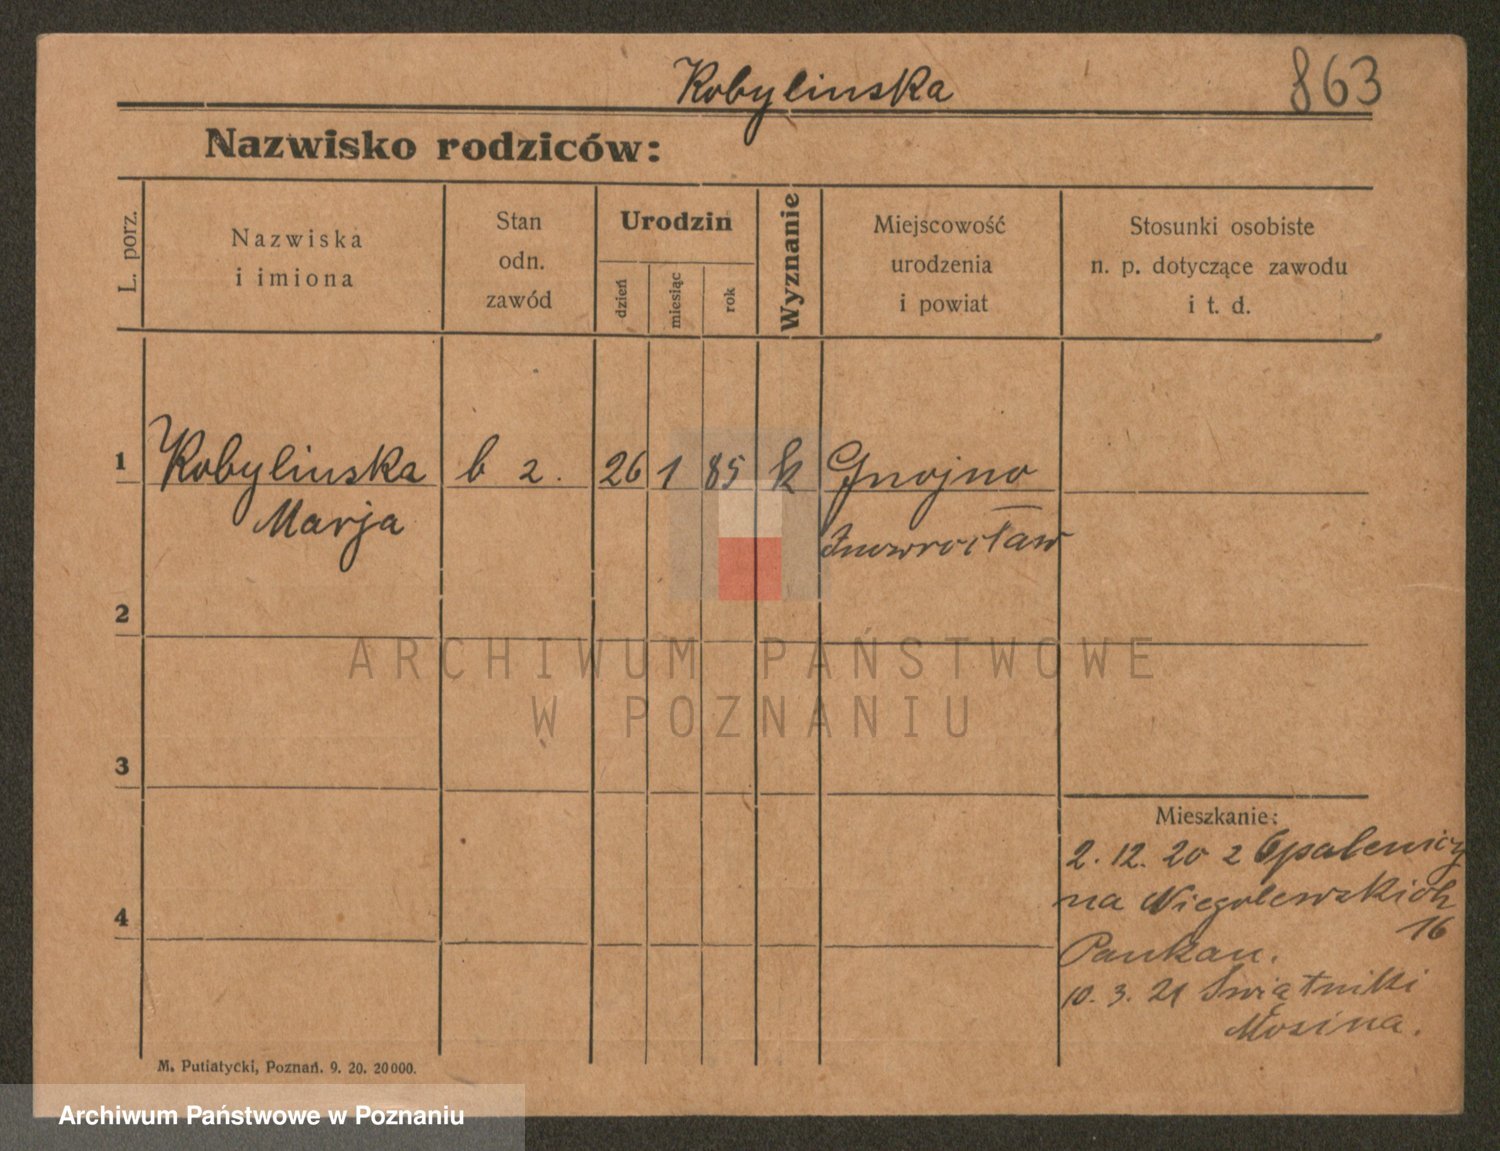 Kobylinska
863
Nazwisko rodziców:
L. porz.
Nazwiska
i imiona
Stan
odn.
zawód
Urodzin
dzień
miesiąc
rok
Wyznanie
Miejscowość
urodzenia
i powiat
Stosunki osobiste
n. p. dotyczące zawodu
i t. d.
1 Kobylinska b z. 26 1 85 k Gnojno
Marja Inowrocław
2
ARCHIWUM PAŃSTWOWE
W POZNANIU
3
Mieszkanie:
2. 12. 20 z Opalenicy
na Niegolewskich
16
4
Pankan.
10. 3. 21 Świątniki
Mosina.
M. Putiatycki, Poznań. 9. 20. 20000.
Archiwum Państwowe w Poznaniu